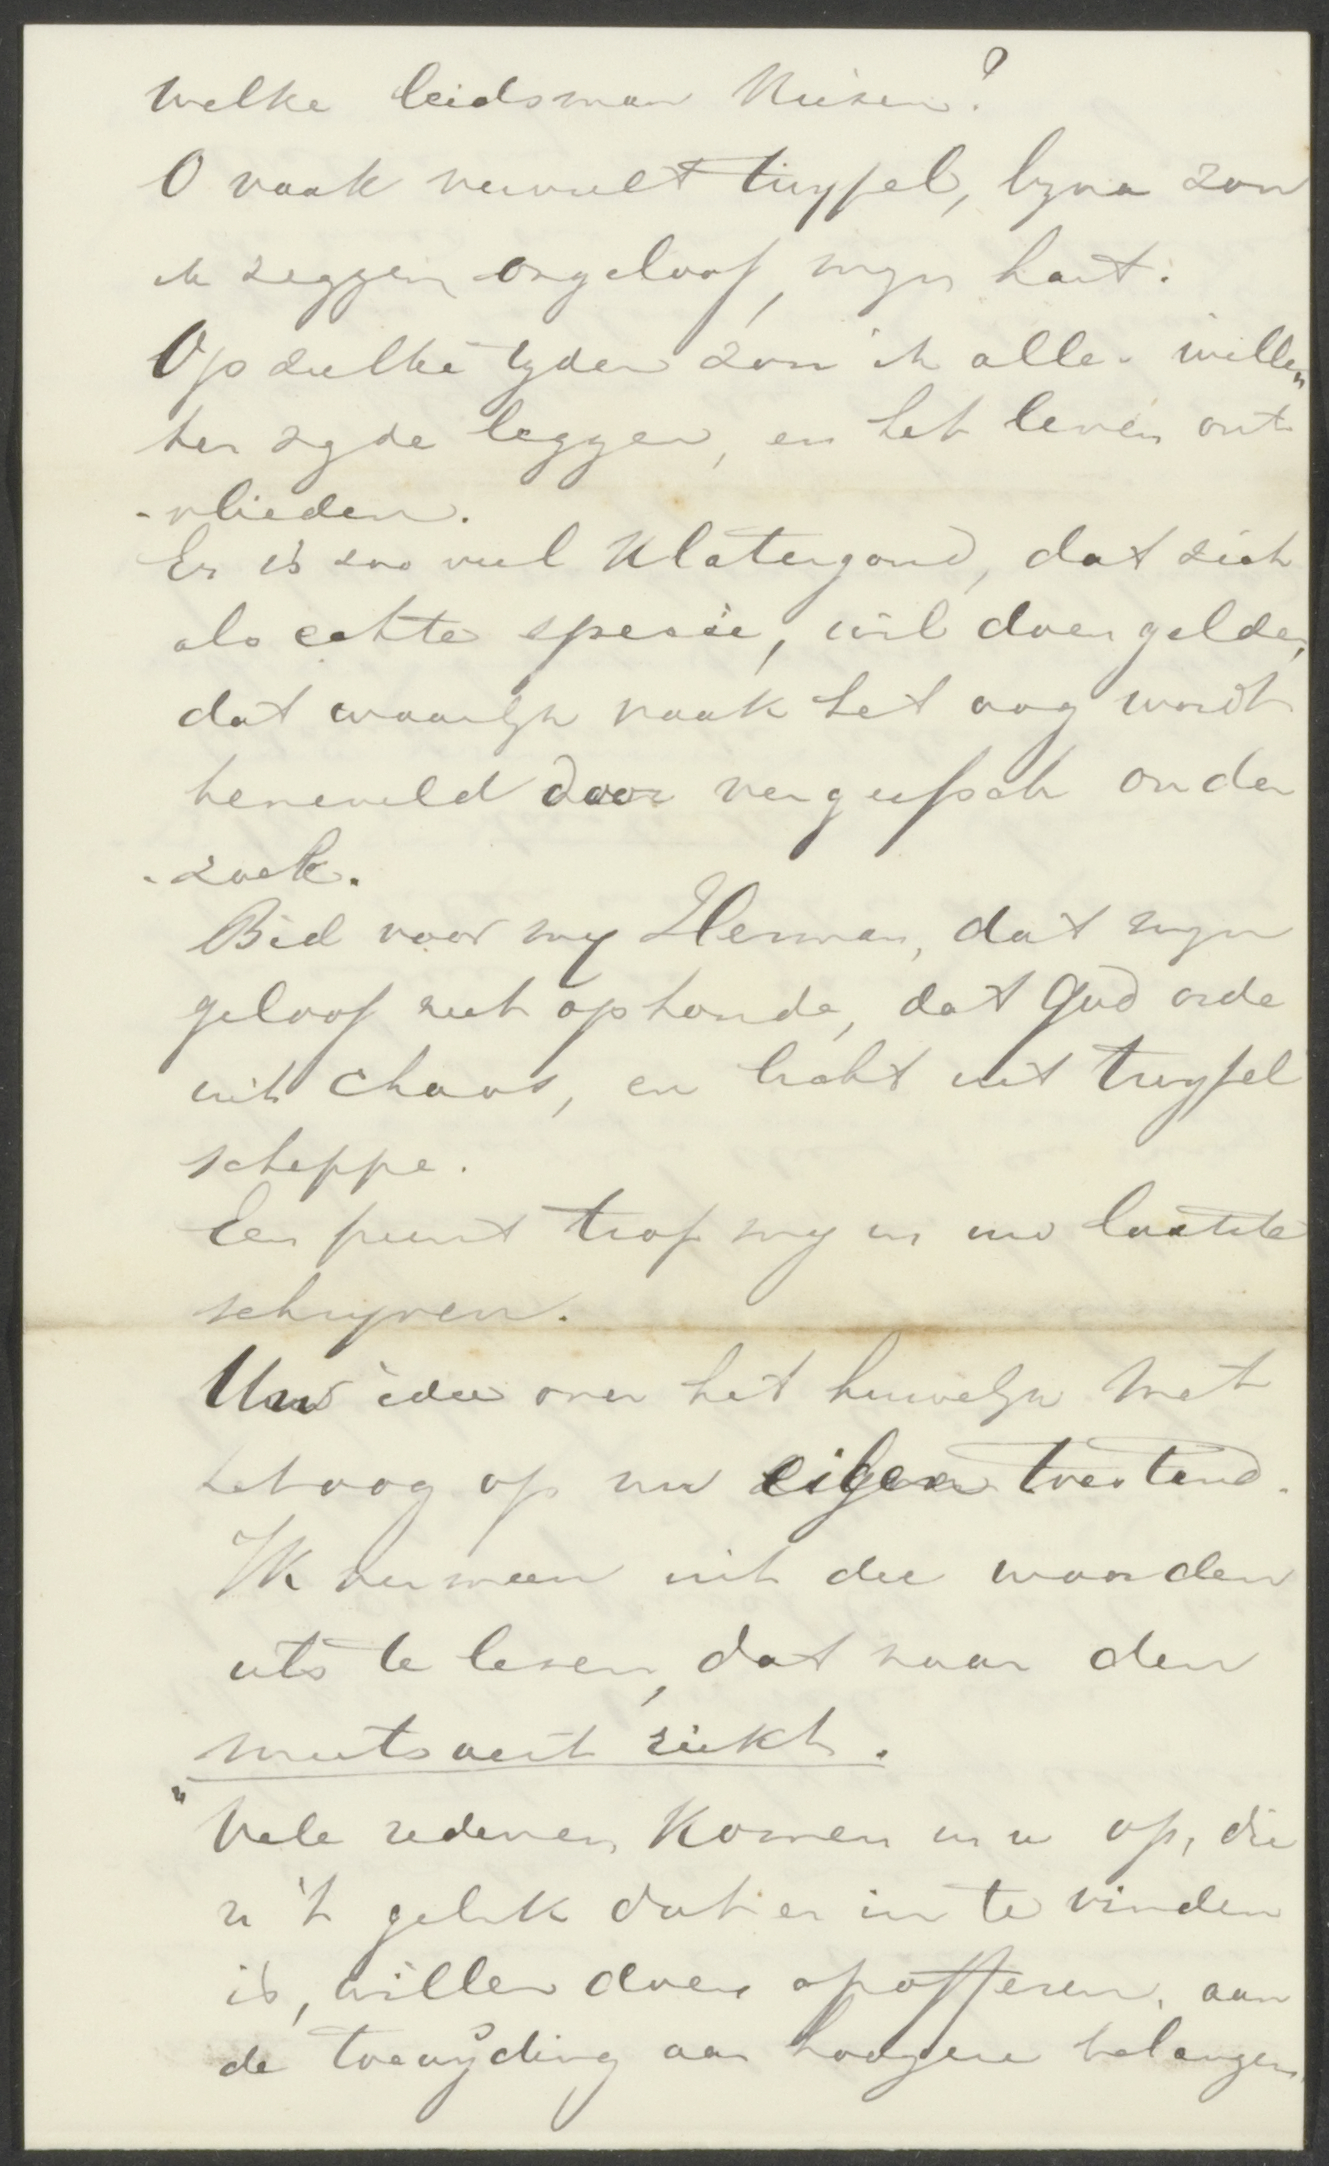 welke leidsman kiezen?
O vaak vervult twyfel, byna zou
ik zeggen ongeloof, myn hart.
Op zulke tyden zou ik alles willen
ter zyde leggen, en het leven ont-
-vlieden.
Er is zoo veel klatergoud, dat zich
als echte specie, wil doen gelden,
dat waarlyk vaak het oog wordt
beneveld door vergeefsch onder
-zoek.
Bid voor my Herman, dat myn
geloof niet ophoude, dat God orde
uit chaos, en licht uit twyfel
scheppe.
Een punt trof my in uw laatste
schryven.
Uw idee over het huwelyk met
het oog op uw eigen toestand.
Ik vermeen uit die woorden
iets te lezen, dat naar den
mutsaert riekt.
"Vele redenen komen in u op, die
u 't geluk dat er in te vinden
is, willen doen opofferen, aan
de toewijding aan hoogere belangen.